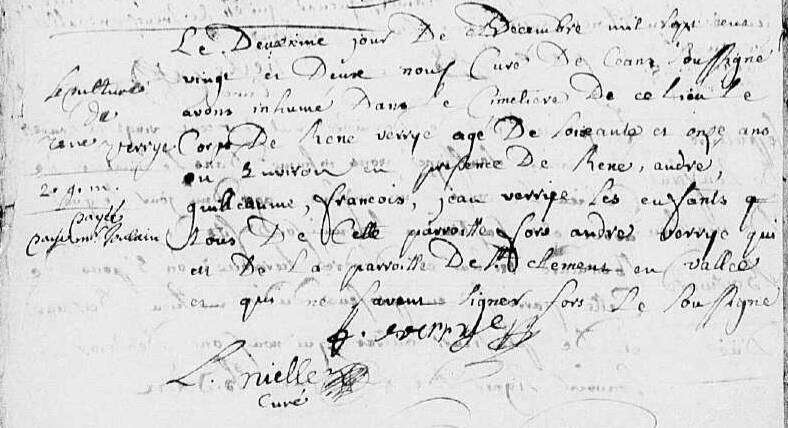 Le Deuxiesme jour De Decembre mil sept cens
vingt et Deux nous Curé De Ceans Soussigné
avons inhumé Dans le Cimetiere De ce lieu Le
Corps De René verrye agé De Soixante et onze ans
ou Environ en presence De René, andré,
guilleaume, francois, jean verrye Les enfants
tous De Celle parroisse fors andré verrye qui
est De La parroisse De St clement en vallée
et qui ne savent signer fors Le soussigné
f. verrye
L. nielle
Curé
sepulture
de
rené verrye